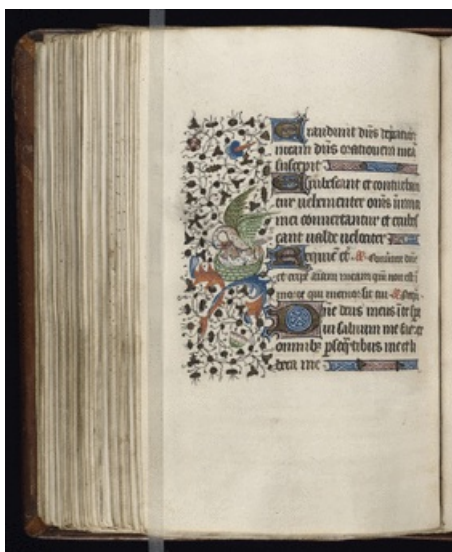 Exaudiuit dñs depcationē
meam dñs orationem meā
suscepit
Erubescant et conturben
tur uehementer om̃s inimici
mei conuertantur et erubes
cant ualde uelociter
Requiē et. a. Conuertere dñe
et eripe aĩam meam qm̃ non est ĩ
morte qui memor sit tui a.
Dñe deus meus ĩ te spe
ui saluum me fac ex
omnibꝫ ꝑseq̃ntibus me et li
bera me